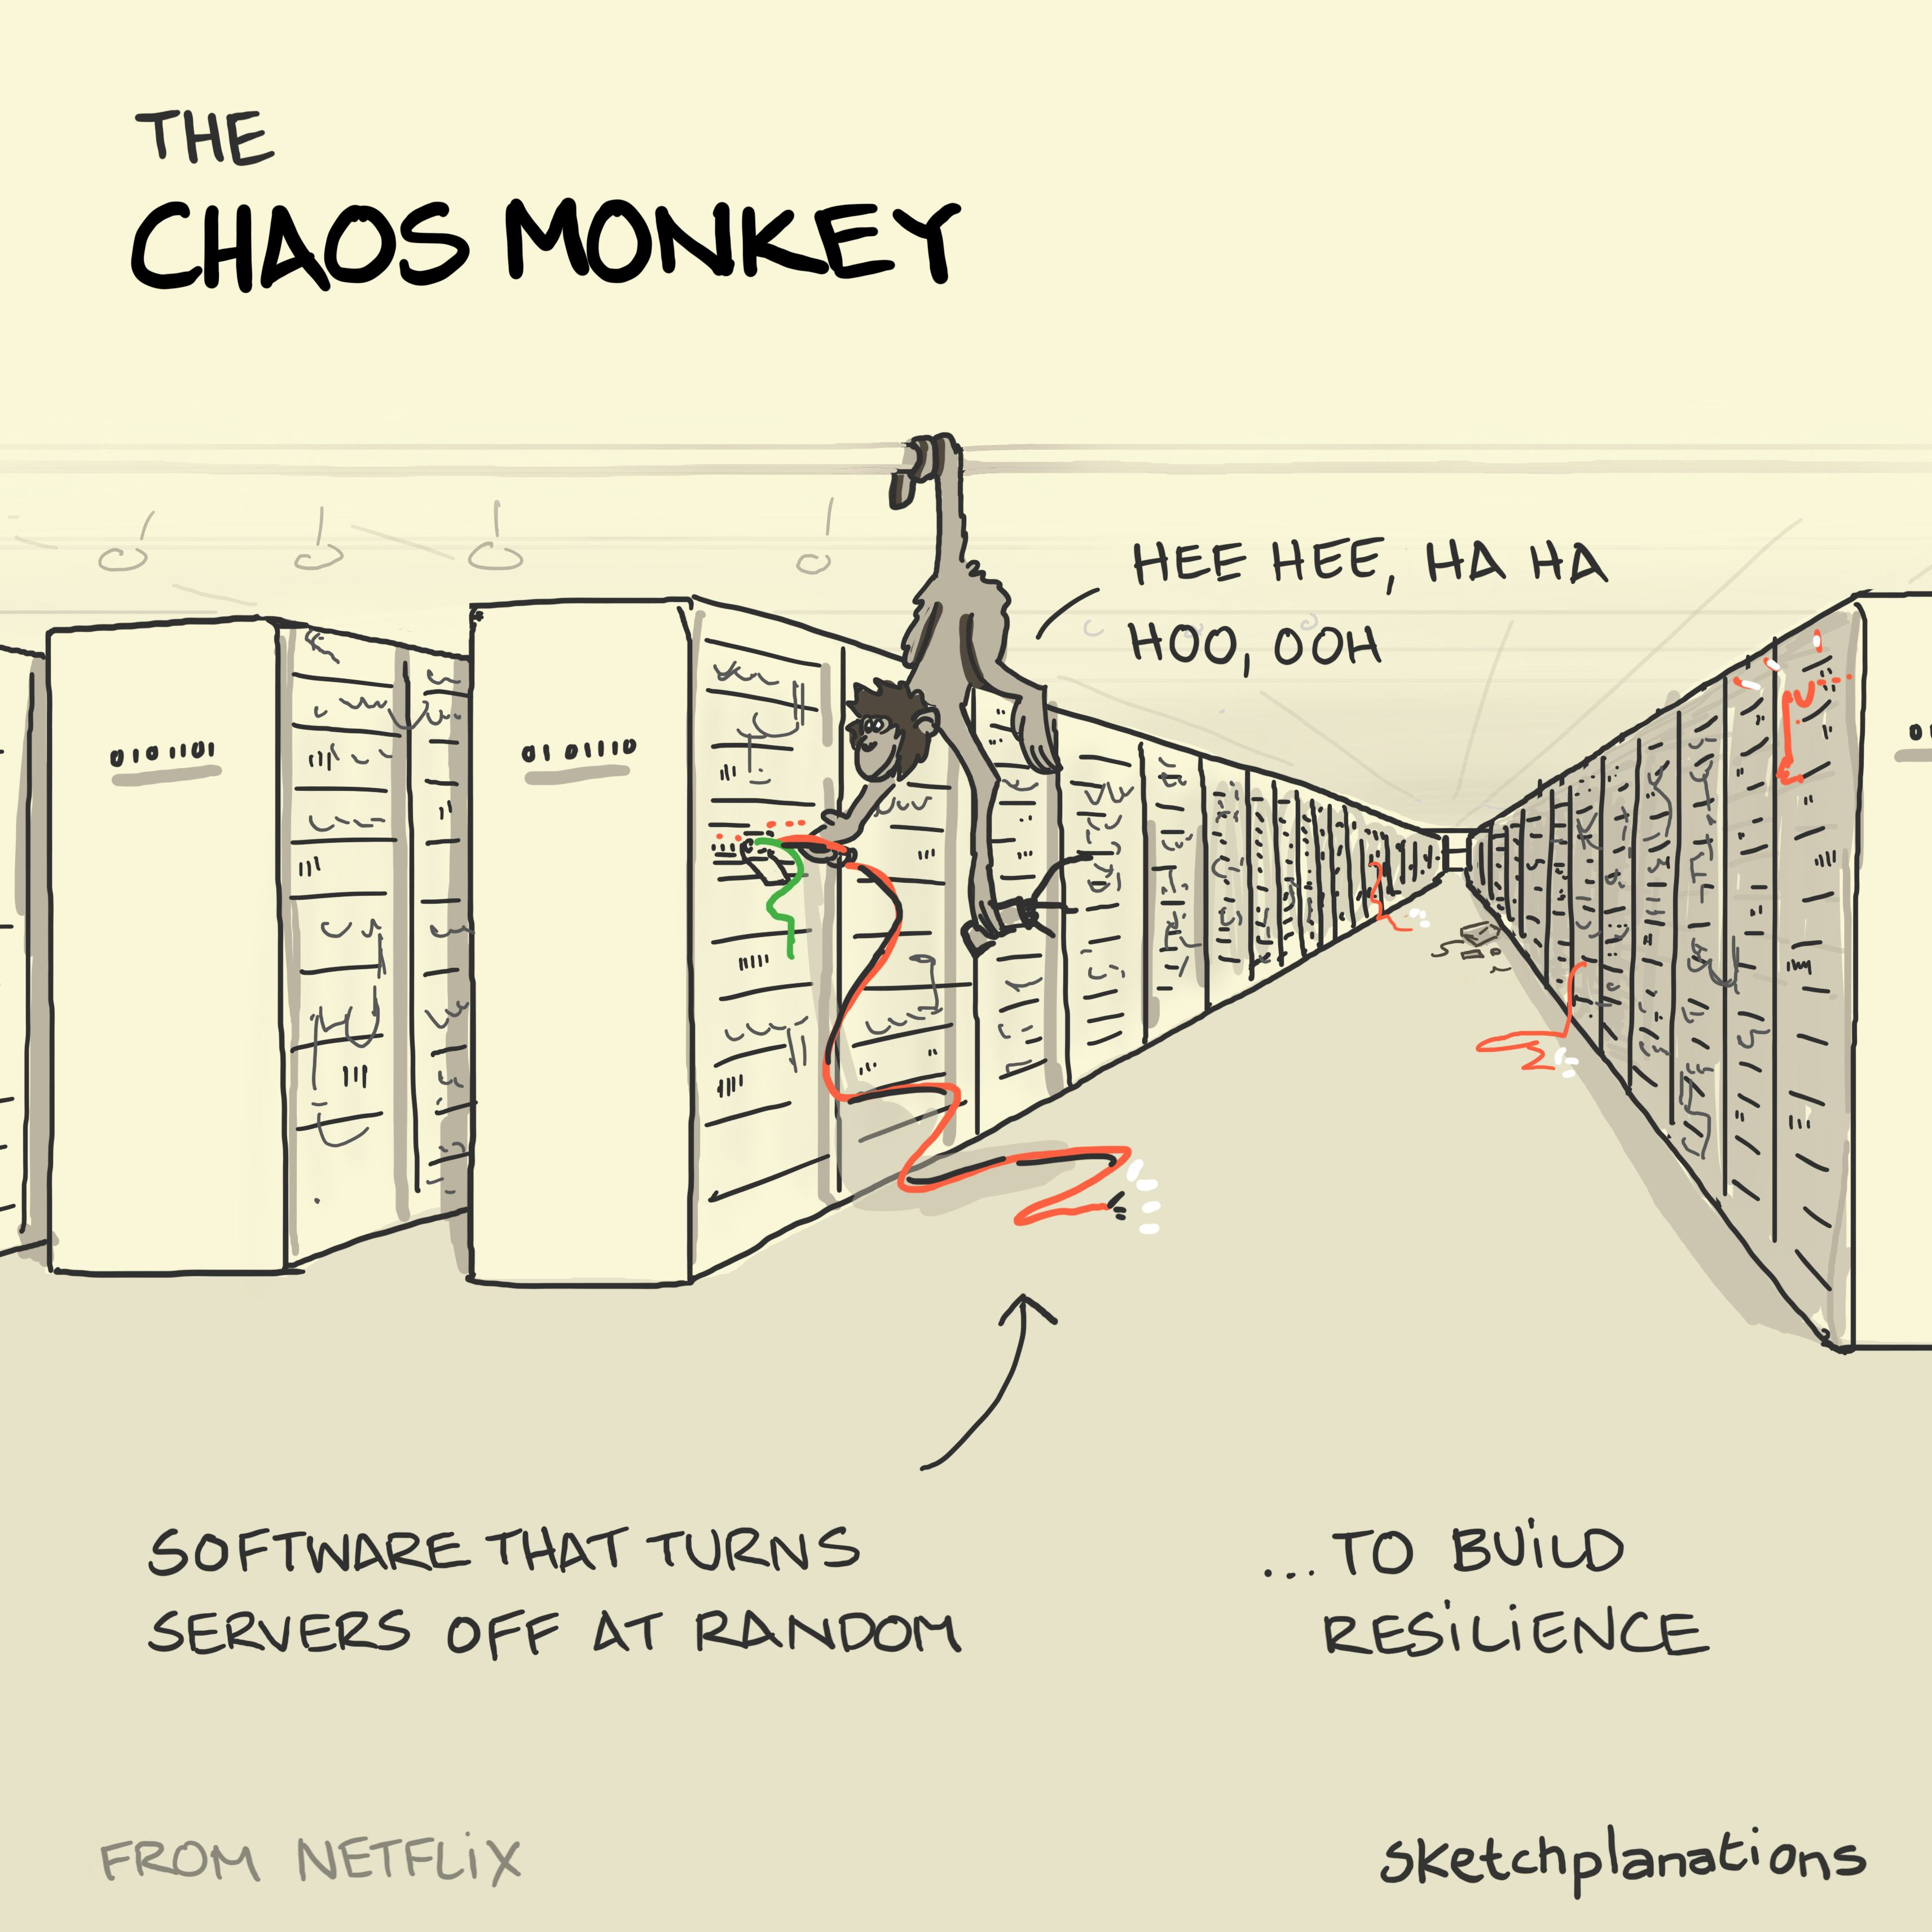 THE
CHAOS MONKEY
HEE HEE, HA HA
HOO, OOH
SOFTWARE THAT TURNS
SERVERS OFF AT RANDOM
...TO BUILD
RESILIENCE
FROM NETFLIX
sketchplanations